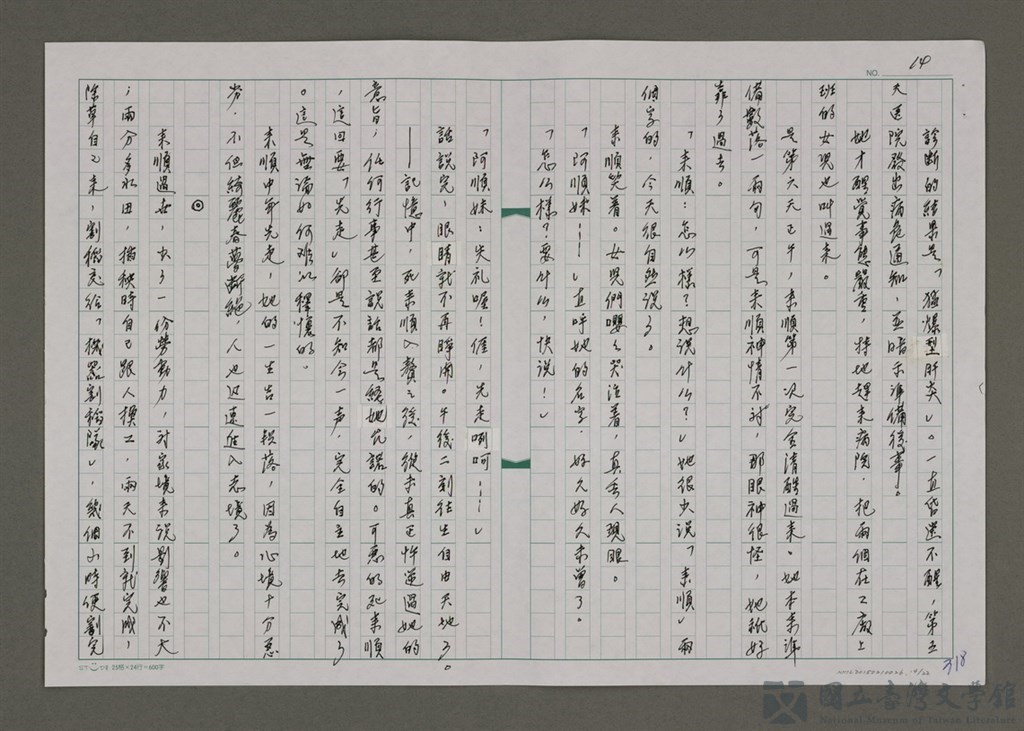 14
NO.
診斷的結果是「猛爆型肝炎」。一直昏迷不醒,第五
天医院發出病危通知,並暗示準備後事。
她才醒覺事態嚴重,特地趕來病院,把兩個在工廠上
班的女兒也叫過來。
是第六天正午,來順第一次完全清醒過來。她本來準
備數落一兩句,可是來順神情不对,那眼神很怪,她祇好
靠了過去。
「來順:怎么樣?想说什么?」她很少说「來順」兩
個字的,今天很自然说了。
來順笑着。女兒們嚶嚶哭泣着,真丟人現眼。
「阿順妹……」直呼她的名字,好久好久未曾了。
「怎么樣?要什么,快说!」
「阿順妹:失礼喔!𠊎,先走咧呵……」
話說完,眼睛就不再睜開。午後二刻往生自由天地了。
——記憶中,死來順入贅之後,從未真正忤逆過她的
意旨;任何行事甚至說話都是經她允諾的。可惡的死來順
,這回要「先走」卻是不知会一声,完全自主地去完成了
。這是無論如何难以釋懷的。
來順中年先走,她的一生告一段落,因為心境十分惡
劣,不但綺麗春夢斷絕,人也迅速進入老境了。
◎
來順過世,少了一份勞動力,对家境來说影響也不大
;兩分多水田,插秧時自己跟人換工,兩天不到就完成,
除草自己來,割稻交給「機器割稻隊」,幾個小時便割完
25格×24行=600字
318
國立臺灣文學館
National Museum of Taiwan Literature